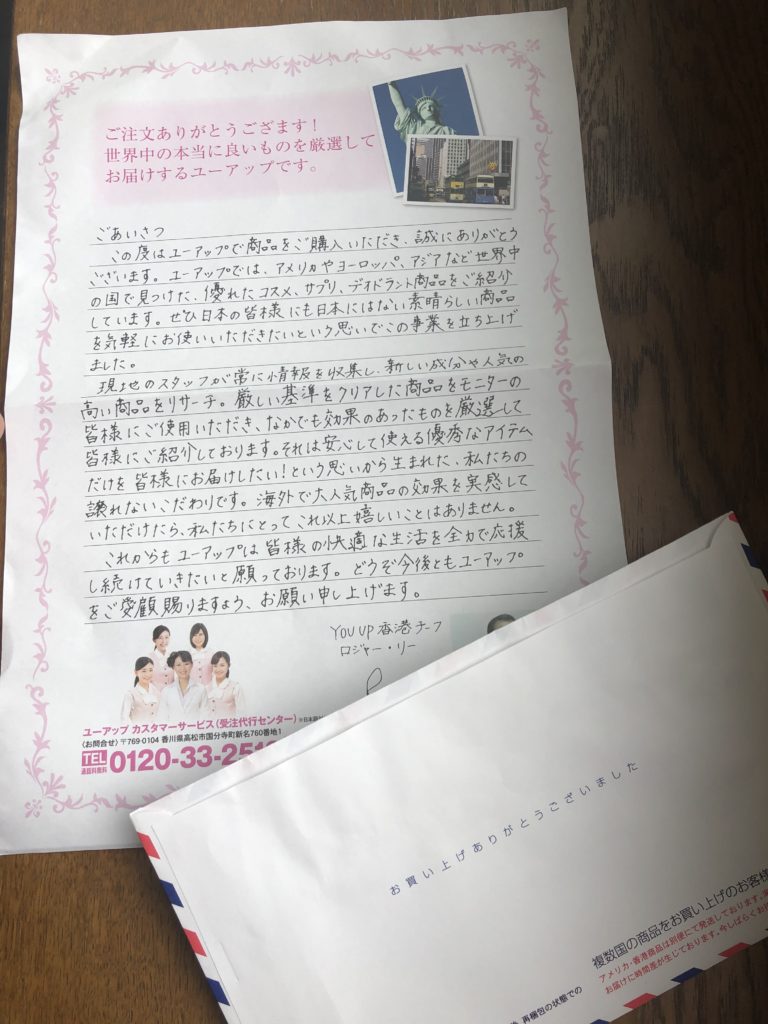 ご注文ありがとうござます！
世界中の本当に良いものを厳選して
お届けするユーアップです。
ごあいさつ
この度はユーアップで商品をご購入いただき、誠にありがとう
ございます。ユーアップでは、アメリカやヨーロッパ、アジアなど世界中
の国で見つけた、優れたコスメ、サプリ、デオドラント商品をご紹介
しています。ぜひ日本の皆様にも日本にはない素晴らしい商品
を気軽にお使いいただきたいという思いでこの事業を立ち上げ
ました。
現地のスタッフが常に情報を収集し、新しい成分や人気の
高い商品をリサーチ。厳しい基準をクリアした商品をモニターの
皆様にご使用いただき、なかでも効果のあったものを厳選して
皆様にご紹介しております。それは安心して使える優秀なアイテム
だけを皆様にお届けしたい！という思いから生まれた、私たちの
譲れないこだわりです。海外で大人気商品の効果を実感して
いただけたら、私たちにとってこれ以上嬉しいことはありません。
これからもユーアップは皆様の快適な生活を全力で応援
し続けていきたいと願っております。どうぞ今後ともユーアップ
をご愛顧賜りますよう、お願い申し上げます。
YOU UP 香港チーフ
ロジャー・リー
ユーアップ カスタマーサービス（受注代行センター）
〈お問合せ〉〒769-0104 香川県高松市国分寺町新名760番地1
TEL 通話料無料 0120-33-251
お買い上げありがとうございました
複数国の商品をお買い上げのお客様
アメリカ・香港商品は別便にて発送しております。
お届けに時間差が生じております。今しばらくお
再梱包の状態での